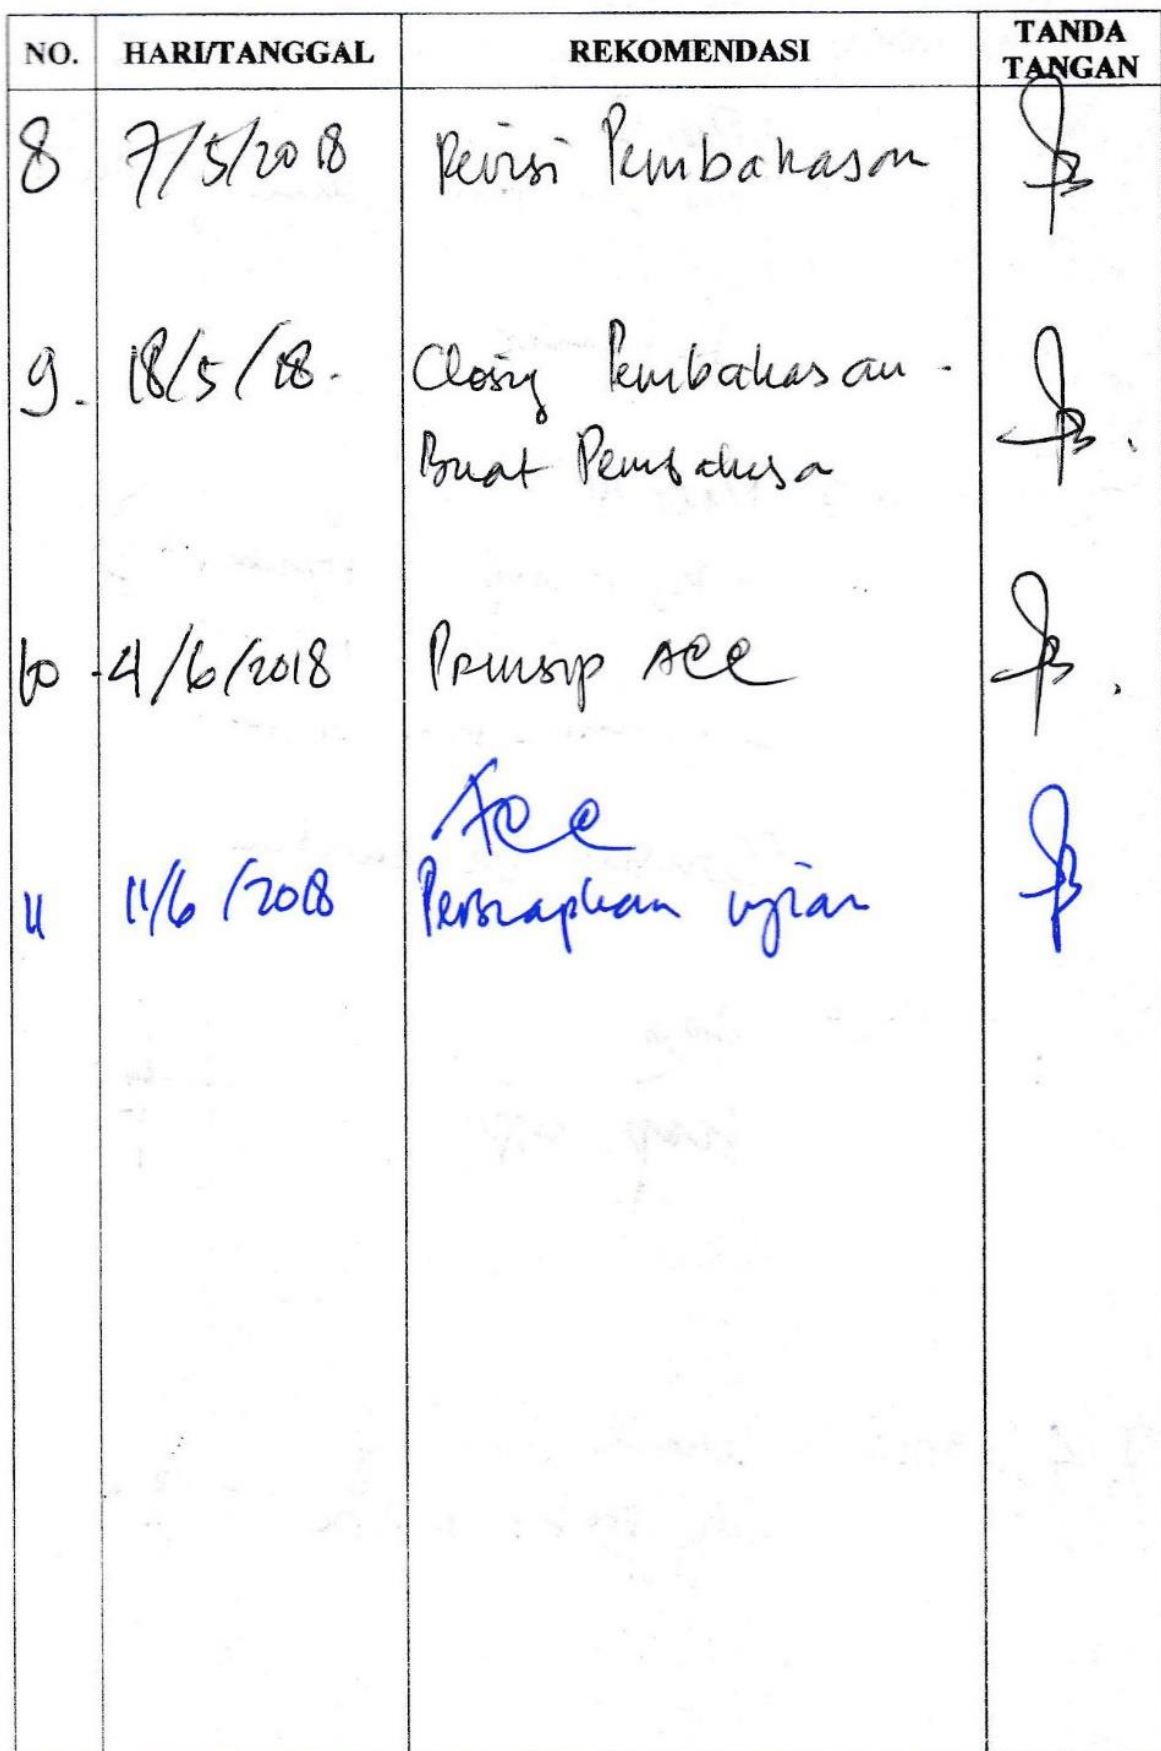 NO. HARI/TANGGAL REKOMENDASI TANDA TANGAN
8 7/5/2018 Revisi Pembahasan
9. 18/5/18. Closing Pembahasan -
Buat Pembahasa
10 - 4/6/2018 Prinsip ACC
ACC
11 11/6/2018 Persiapkan ujian